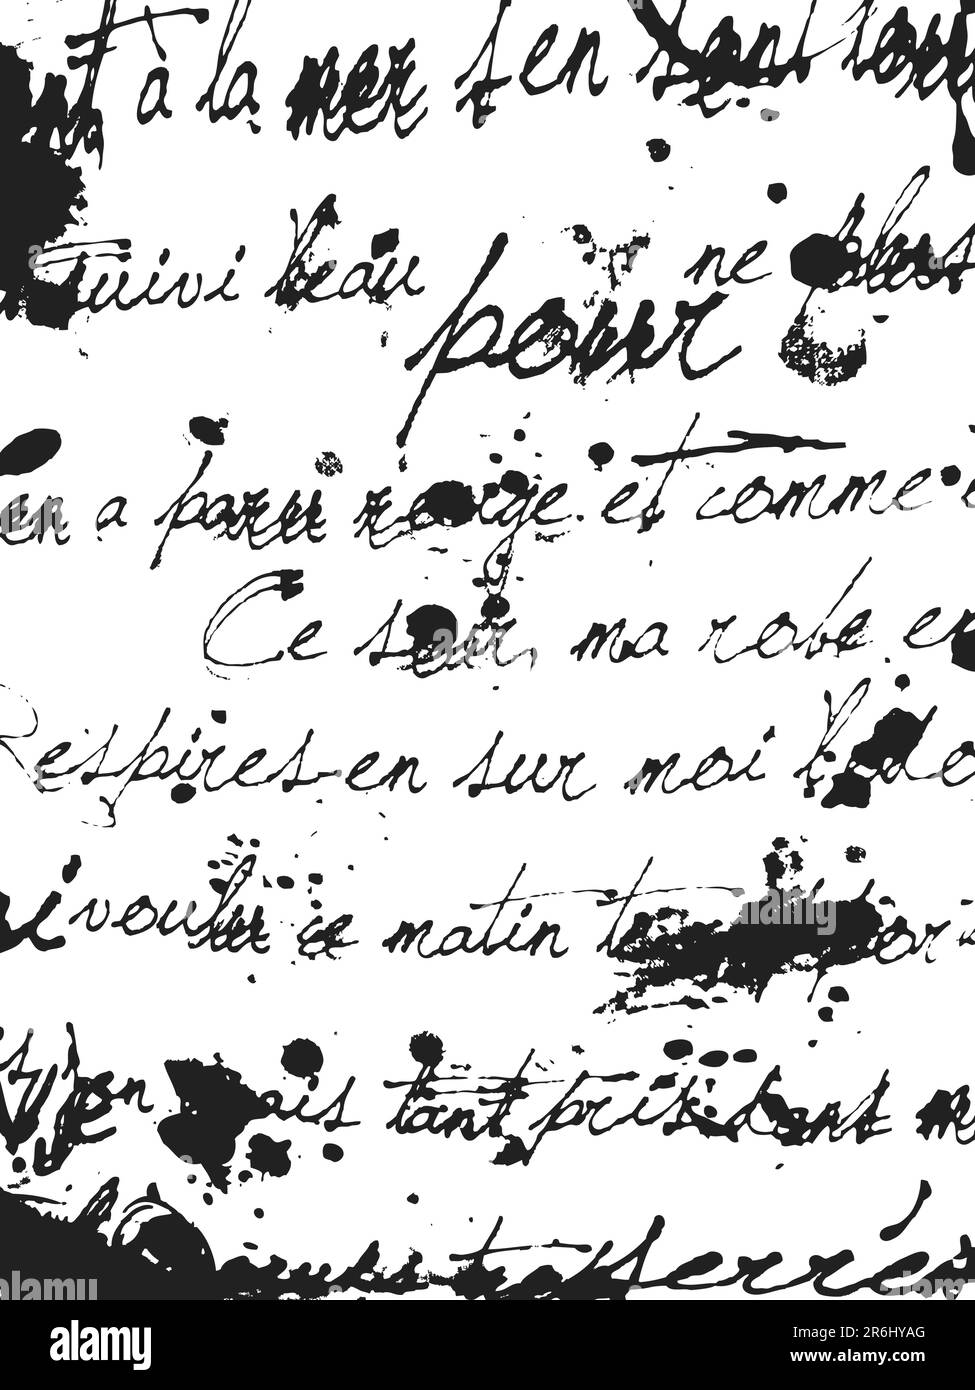 à la mer s'en sont
suivi l'eau ne plus
pour
en a paru rouge et comme
Ce soir, ma robe en
Respires-en sur moi l'odo
voulu ce matin te
j'en avais tant pris dans m
serré
alamy
Image ID: 2R6HYAG
www.alamy.com